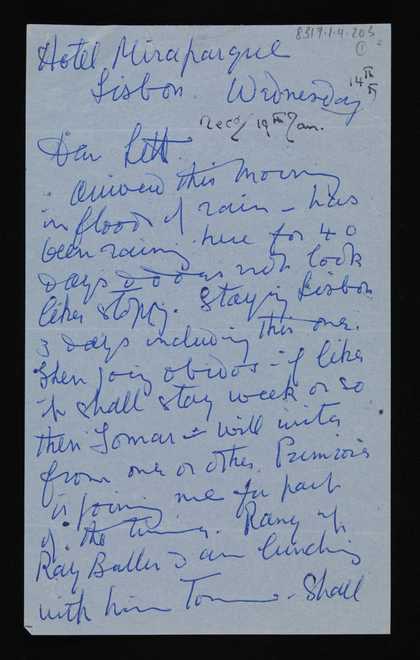 8317.1.4.203
1
Hotel Miraparque
Lisbon. Wednesday 14th
Recd 19th Jan.
Dear Lett.
Arrived this morning
in floods of rain – has
been raining here for 40
days & does not look
like stopping. Staying Lisbon
3 days including this one.
Then going Obidos – if like
it shall stay week or so
then Tomar – will write
from one or other. Primrose
is joining me for part
of the time. Rang up
Ray Butler & am lunching
with him Tom – Shall